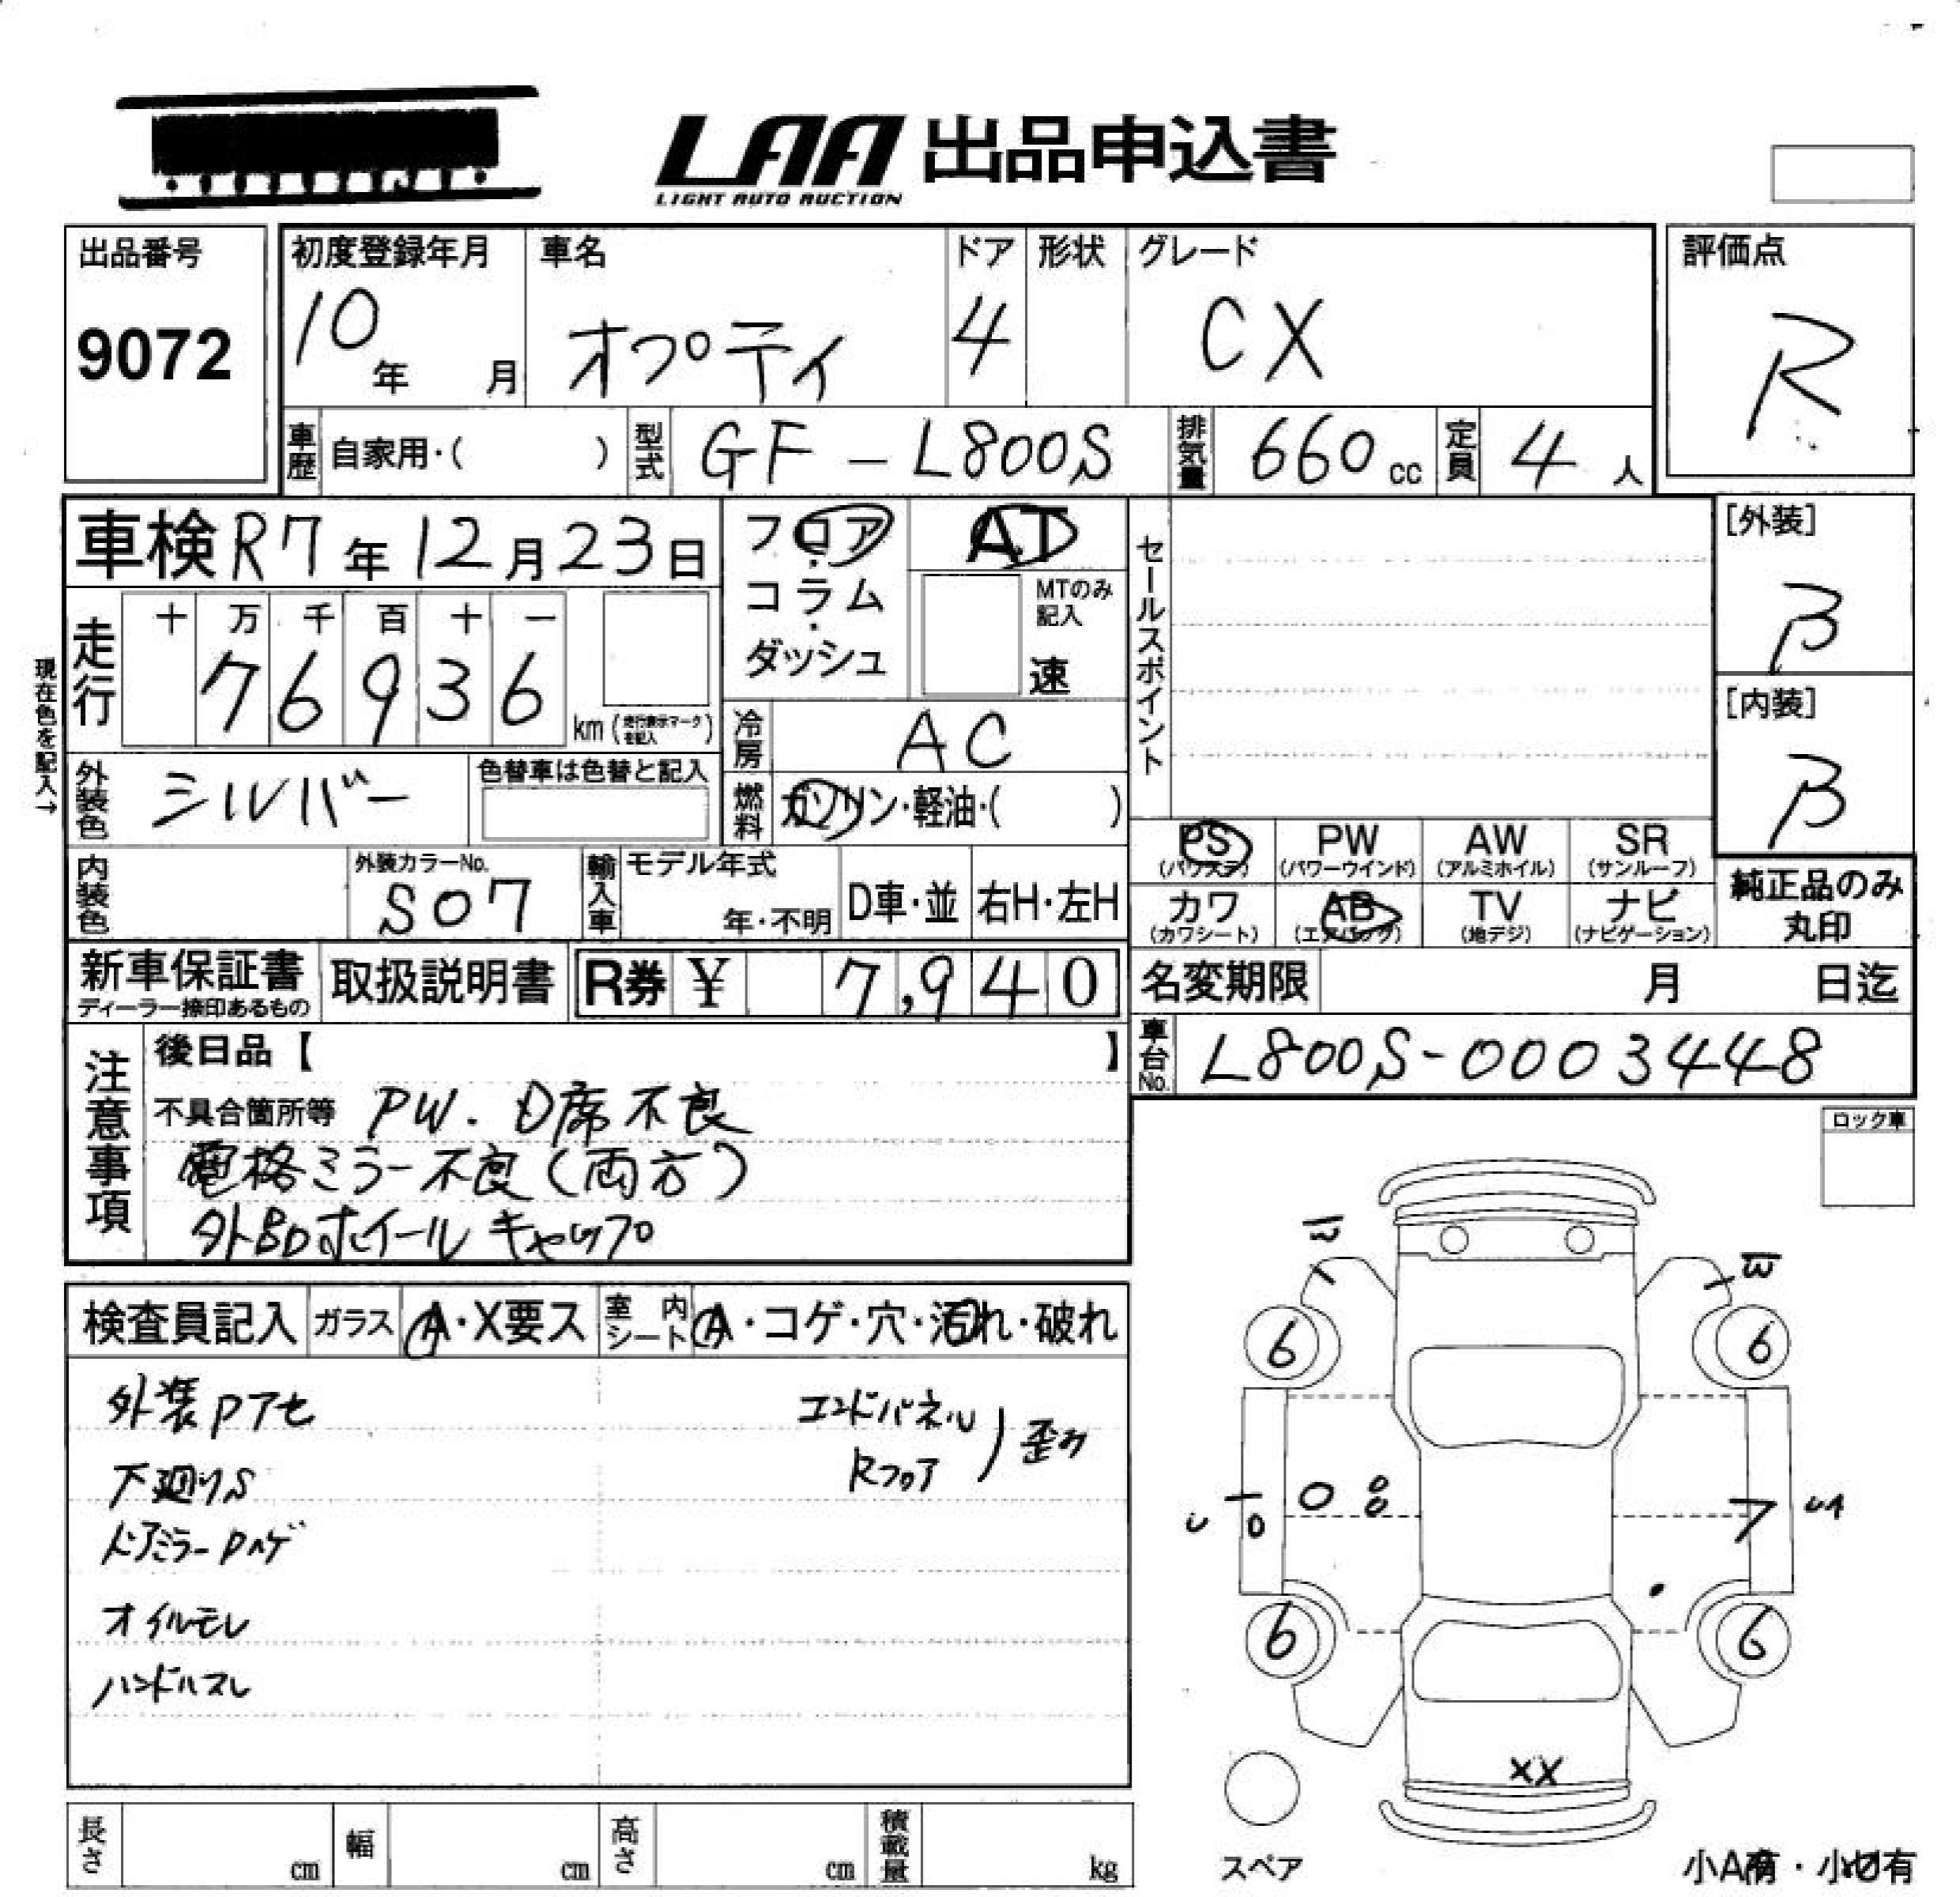 LAA 出品申込書
LIGHT AUTO AUCTION
出品番号 初度登録年月 車名 ドア 形状 グレード 評価点
9072 10年 月 オプティ 4 CX R
車歴 自家用・( ) 型式 GF-L800S 排気量 660cc 定員 4人
車検 R7年12月23日 フロア・コラム・ダッシュ AT セールスポイント [外装]
MTのみ記入
速
β
現在色を記入→
走行 十 万 千 百 十 一
76936 km (走行表示マークを記入)
[内装]
β
冷房 AC
外装色 シルバー 色替車は色替と記入 燃料 ガソリン・軽油・( )
PS (パワステ) PW (パワーウインド) AW (アルミホイル) SR (サンルーフ)
内装色 外装カラーNo. S07 輸入車 モデル年式 年・不明 D車・並 右H・左H
カワ (カワシート) AB (エアバッグ) TV (地デジ) ナビ (ナビゲーション) 純正品のみ丸印
新車保証書 ディーラー捺印あるもの 取扱説明書 R券 ¥ 7,940 名変期限 月 日迄
車台No. L800S-0003448
注意事項 後日品【 】
不具合箇所等 PW. D席不良
電格ミラー不良(両方)
外品ホイールキャップ
ロック車
検査員記入 ガラス A・X要ス 室内シート A・コゲ・穴・汚れ・破れ
外装Pアセ エンドパネル
Rフロア
歪み
下廻りS
ドアミラーPハゲ
オイルモレ
ハンドルスレ
6 6
U UA
6 6
XX
スペア
小A有・小U有
長さ cm 幅 cm 高さ cm 積載量 kg